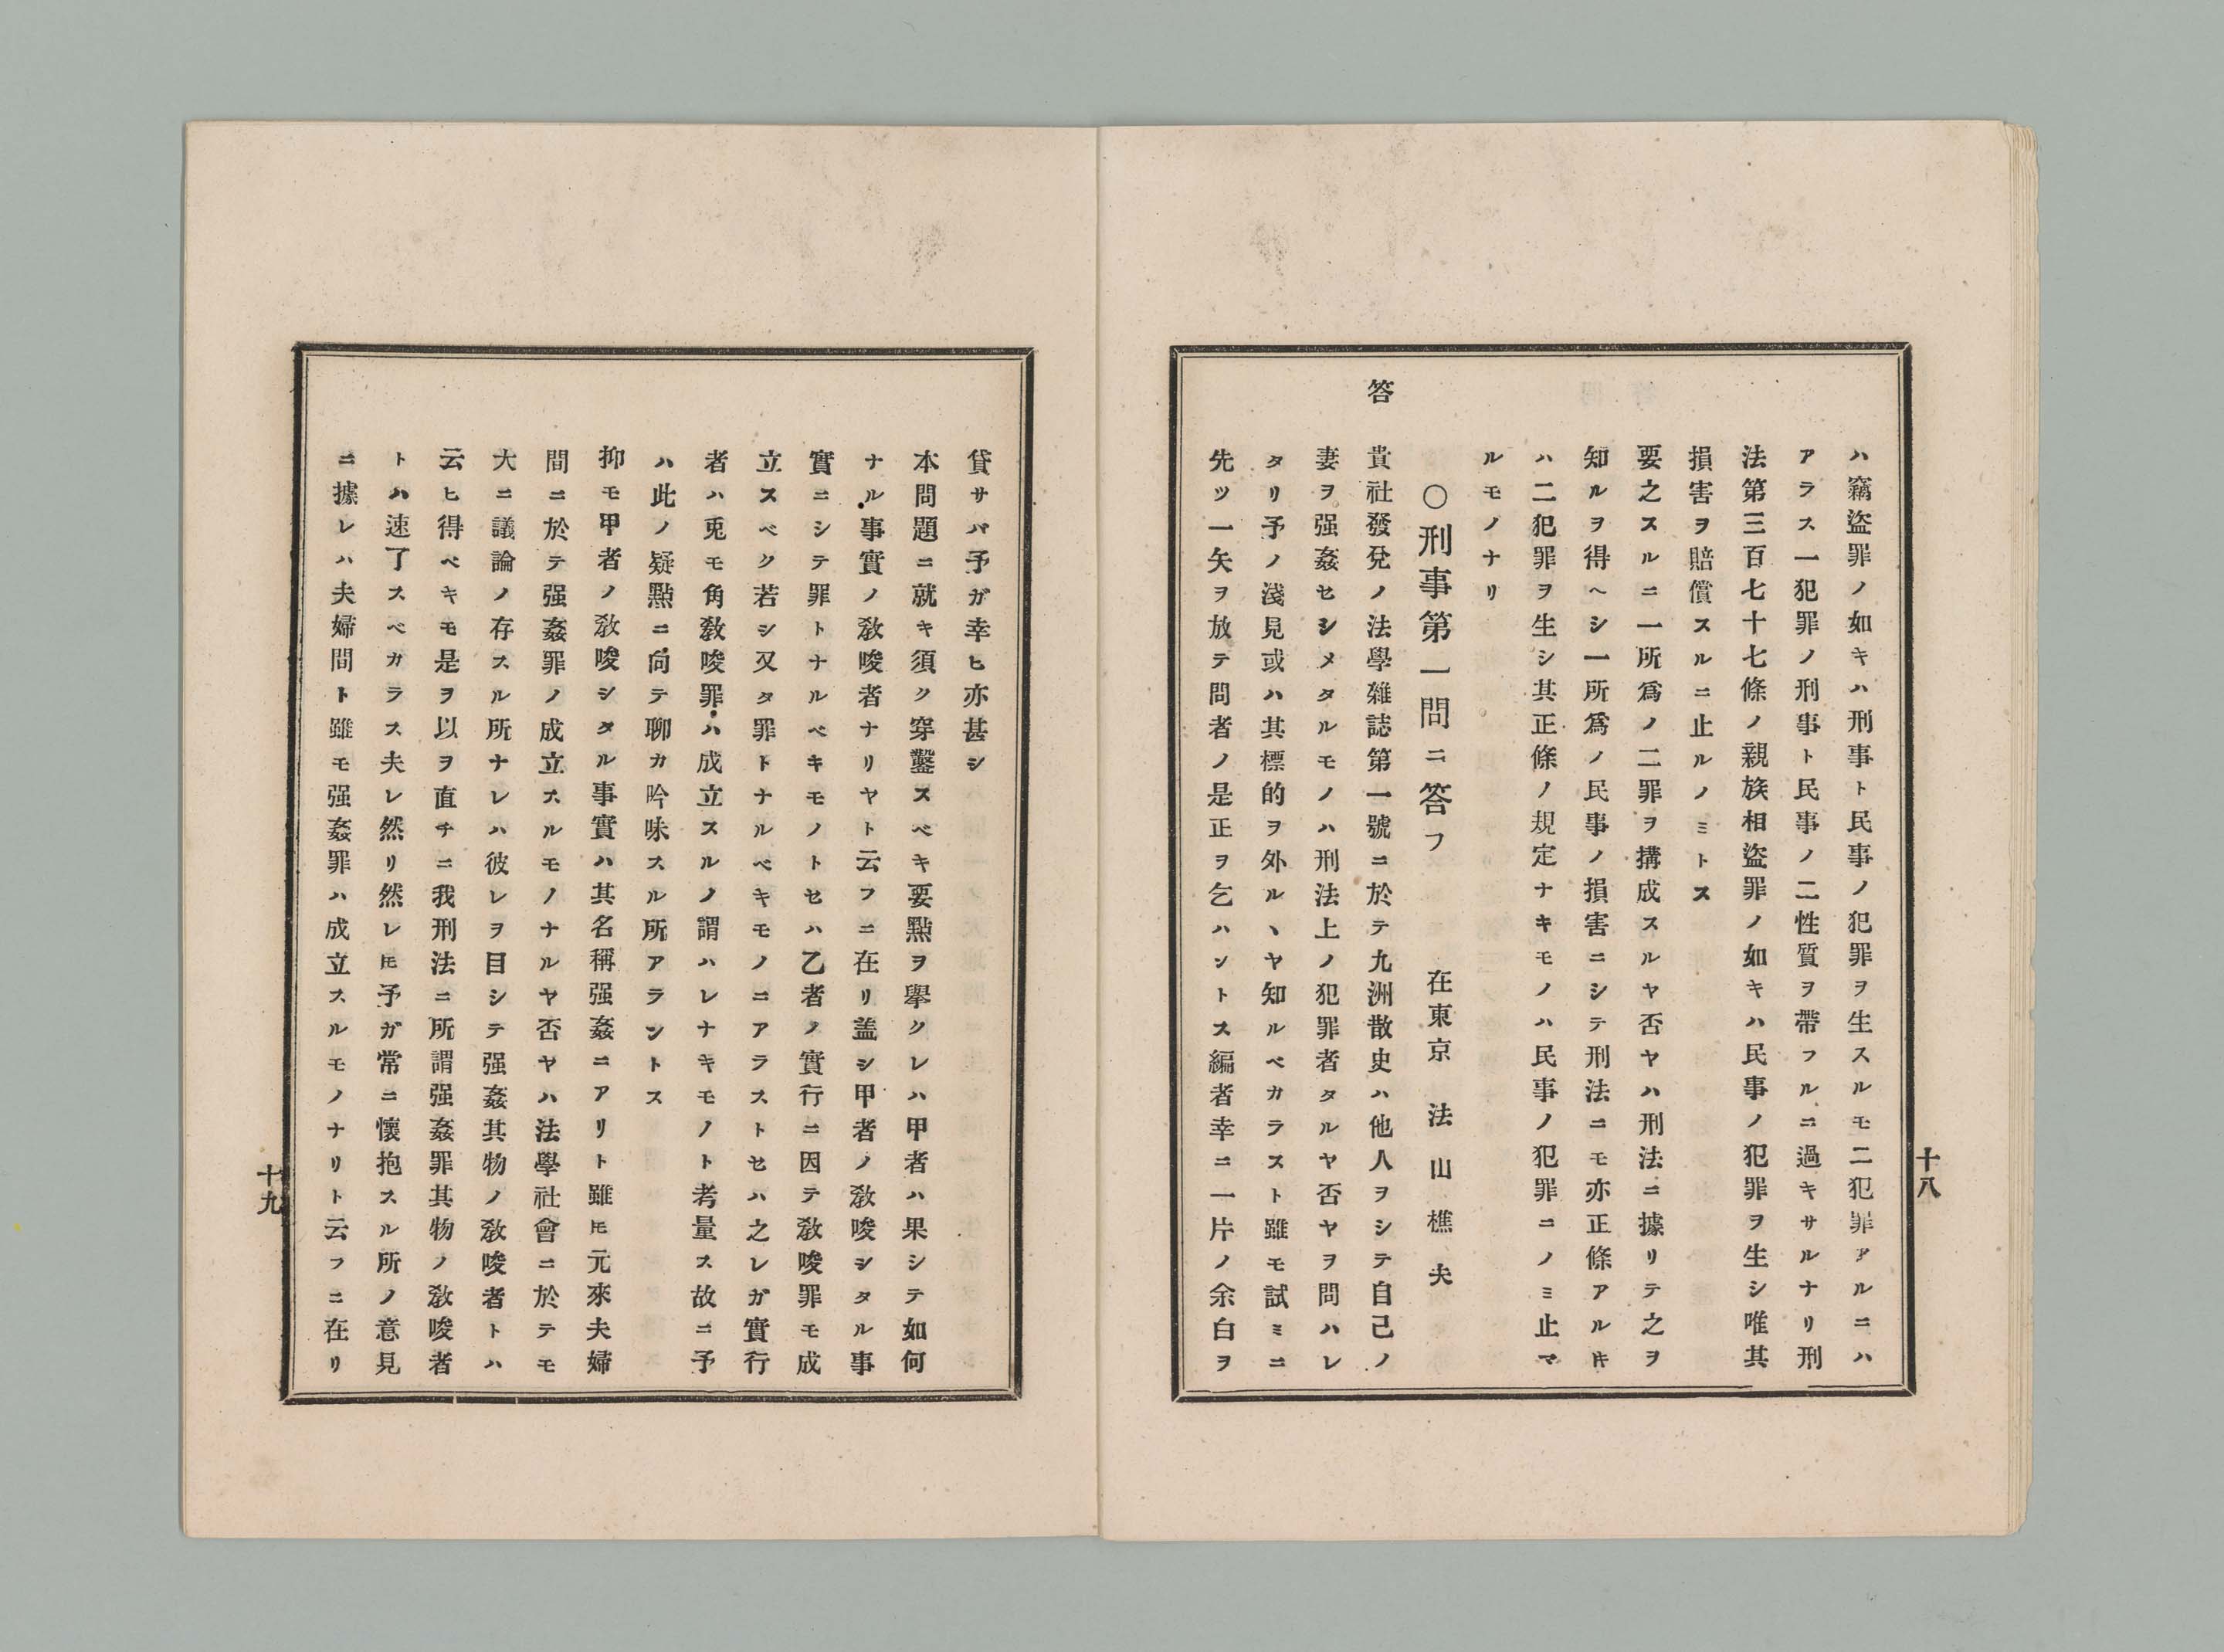 十八
ハ竊盜罪ノ如キハ刑事ト民事ノ犯罪ヲ生スルモ二犯罪アルニハ
アラス一犯罪ノ刑事ト民事ノ二性質ヲ帶フルニ過キサルナリ刑
法第三百七十七條ノ親族相盜罪ノ如キハ民事ノ犯罪ヲ生シ唯其
損害ヲ賠償スルニ止ルノミトス
要之スルニ一所爲ノ二罪ヲ搆成スルヤ否ヤハ刑法ニ據リテ之ヲ
知ルヲ得ヘシ一所爲ノ民事ノ損害ニシテ刑法ニモ亦正條アルキ
ハ二犯罪ヲ生シ其正條ノ規定ナキモノハ民事ノ犯罪ニノミ止マ
ルモノナリ
○刑事第一問ニ答フ 在東京 法山樵夫
答 貴社發兌ノ法學雜誌第一號ニ於テ九洲散史ハ他人ヲシテ自己ノ
妻ヲ强姦セシメタルモノハ刑法上ノ犯罪者タルヤ否ヤヲ問ハレ
タリ予ノ淺見或ハ其標的ヲ外ルヽヤ知ルベカラスト雖モ試ミニ
先ツ一矢ヲ放テ問者ノ是正ヲ乞ハントス編者幸ニ一片ノ余白ヲ
貸サバ予ガ幸ヒ亦甚シ
本問題ニ就キ須ク穿鑿スベキ要點ヲ擧クレハ甲者ハ果シテ如何
ナル事實ノ敎唆者ナリヤト云フニ在リ盖シ甲者ノ敎唆シタル事
實ニシテ罪トナルベキモノトセハ乙者ノ實行ニ因テ敎唆罪モ成
立スベク若シ又タ罪トナルベキモノニアラストセハ之レガ實行
者ハ兎モ角敎唆罪ハ成立スルノ謂ハレナキモノト考量ス故ニ予
ハ此ノ疑點ニ向テ聊カ吟味スル所アラントス
抑モ甲者ノ敎唆シタル事實ハ其名稱强姦ニアリト雖𪜈元來夫婦
間ニ於テ强姦罪ノ成立スルモノナルヤ否ヤハ法學社會ニ於テモ
大ニ議論ノ存スル所ナレハ彼レヲ目シテ强姦其物ノ敎唆者トハ
云ヒ得ベキモ是ヲ以ヲ直チニ我刑法ニ所謂强姦罪其物ノ敎唆者
トハ速了スベカラス夫レ然リ然レ𪜈予ガ常ニ懷抱スル所ノ意見
ニ據レハ夫婦間ト雖モ强姦罪ハ成立スルモノナリト云フニ在リ
十九